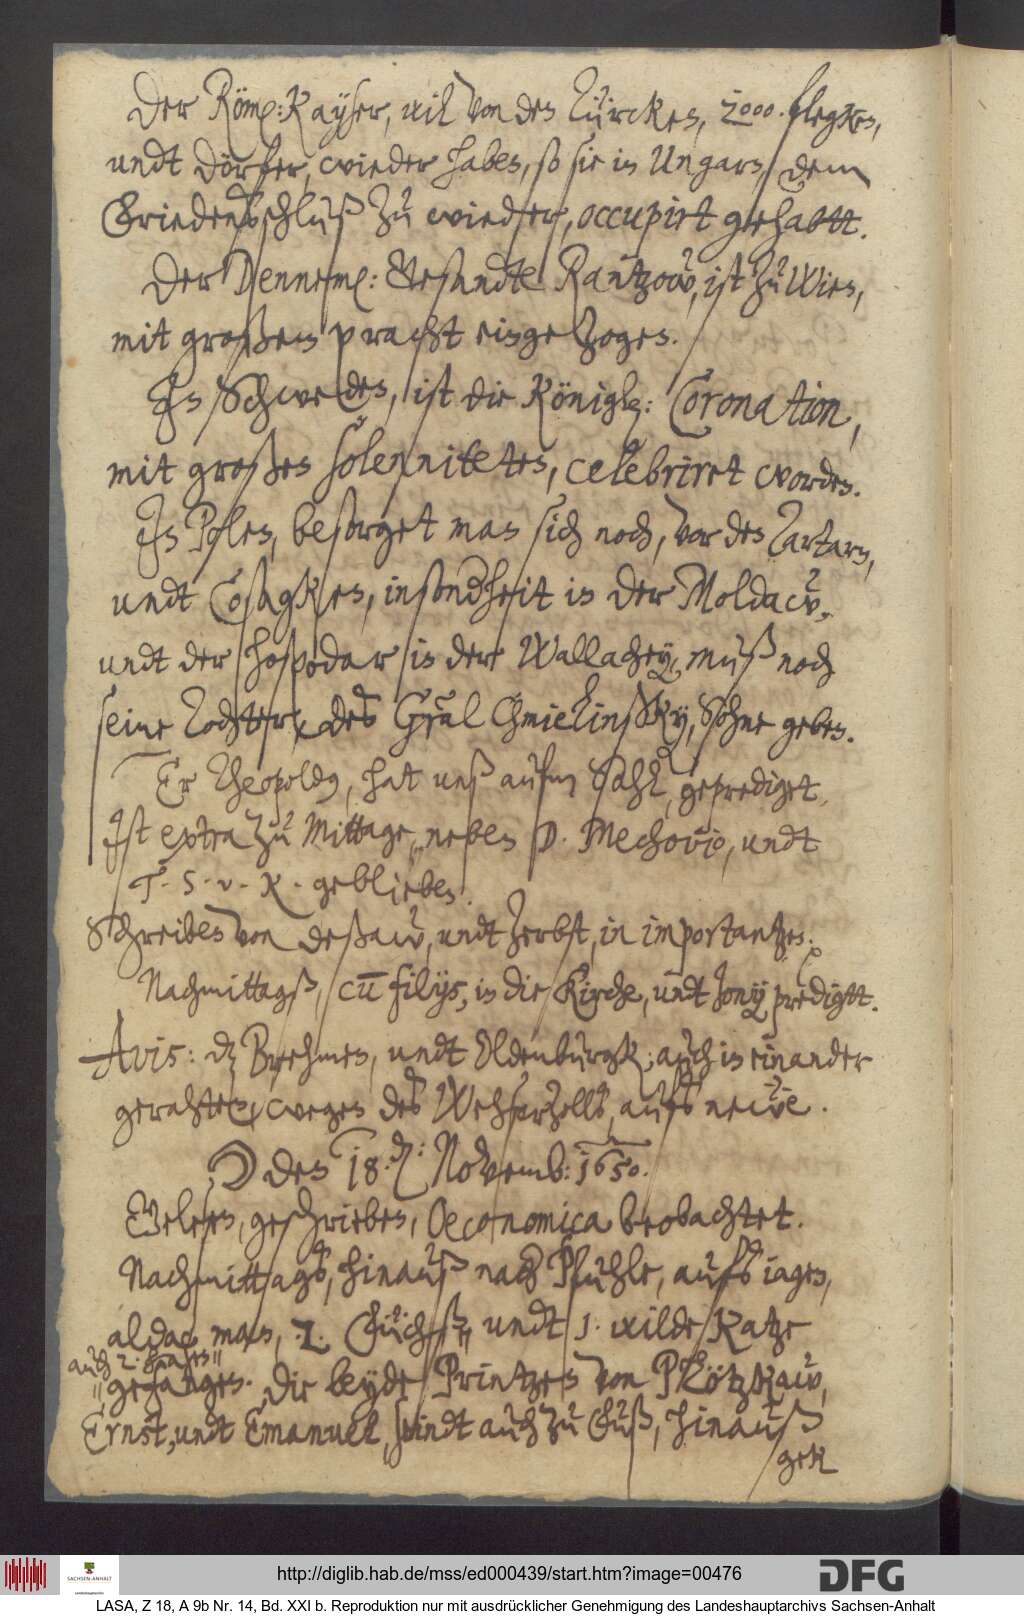 Der Röm: Kayser, will von den Türcken, 2000. flegken,
undt dörfer, wieder haben, so sie in Ungarn, dem
Friedensschluß zu wieder, occupirt gehabtt.
Der Dennem: Gesandte Rantzow, ist zu Wien,
mit großem pracht eingezogen.
In Schweden, ist die Königl: Coronation,
mit großen solenniteten, celebriret worden.
In Polen, besorget man sich noch, vor den Tartarn,
undt Cosagken, insonderheit in der Moldaw,
undt der hospodar in der Wallachey, muß noch
seine Tochter, des Gräl Chmielinssky, Sohne geben.
Er Theopoldus, hat unß aufm Sahl, geprediget,
Ist extra zu Mittage, neben D. Mechovio, undt
T. S. v. K. geblieben.
Schreiben von Deßaw, undt Zerbst, in importantzen.
Nachmittagß, cū filijs, in die Kirche, undt Jonij predigtt.
Avis: dz Brehmen, undt Oldenburgk, auch in einander
gerahten, wegen des Weserzolls, aufs neẅe.
☽ den 18. Novemb: 1650.
Gelesen, geschrieben, Oeconomica beobachtet.
Nachmittags, hinauß nach Pfuhle, aufs iagen,
aldar man, 2. Füchß, undt 1. wilde Katze
auch 2. haasen
gefangen. Die beyde Printzen von Plötzkaw,
Ernst, undt Emanuel, seindt auch zu Fuß, hinauß
ge
http://diglib.hab.de/mss/ed000439/start.htm?image=00476
SACHSEN-ANHALT
DFG
LASA, Z 18, A 9b Nr. 14, Bd. XXI b. Reproduktion nur mit ausdrücklicher Genehmigung des Landeshauptarchivs Sachsen-Anhalt